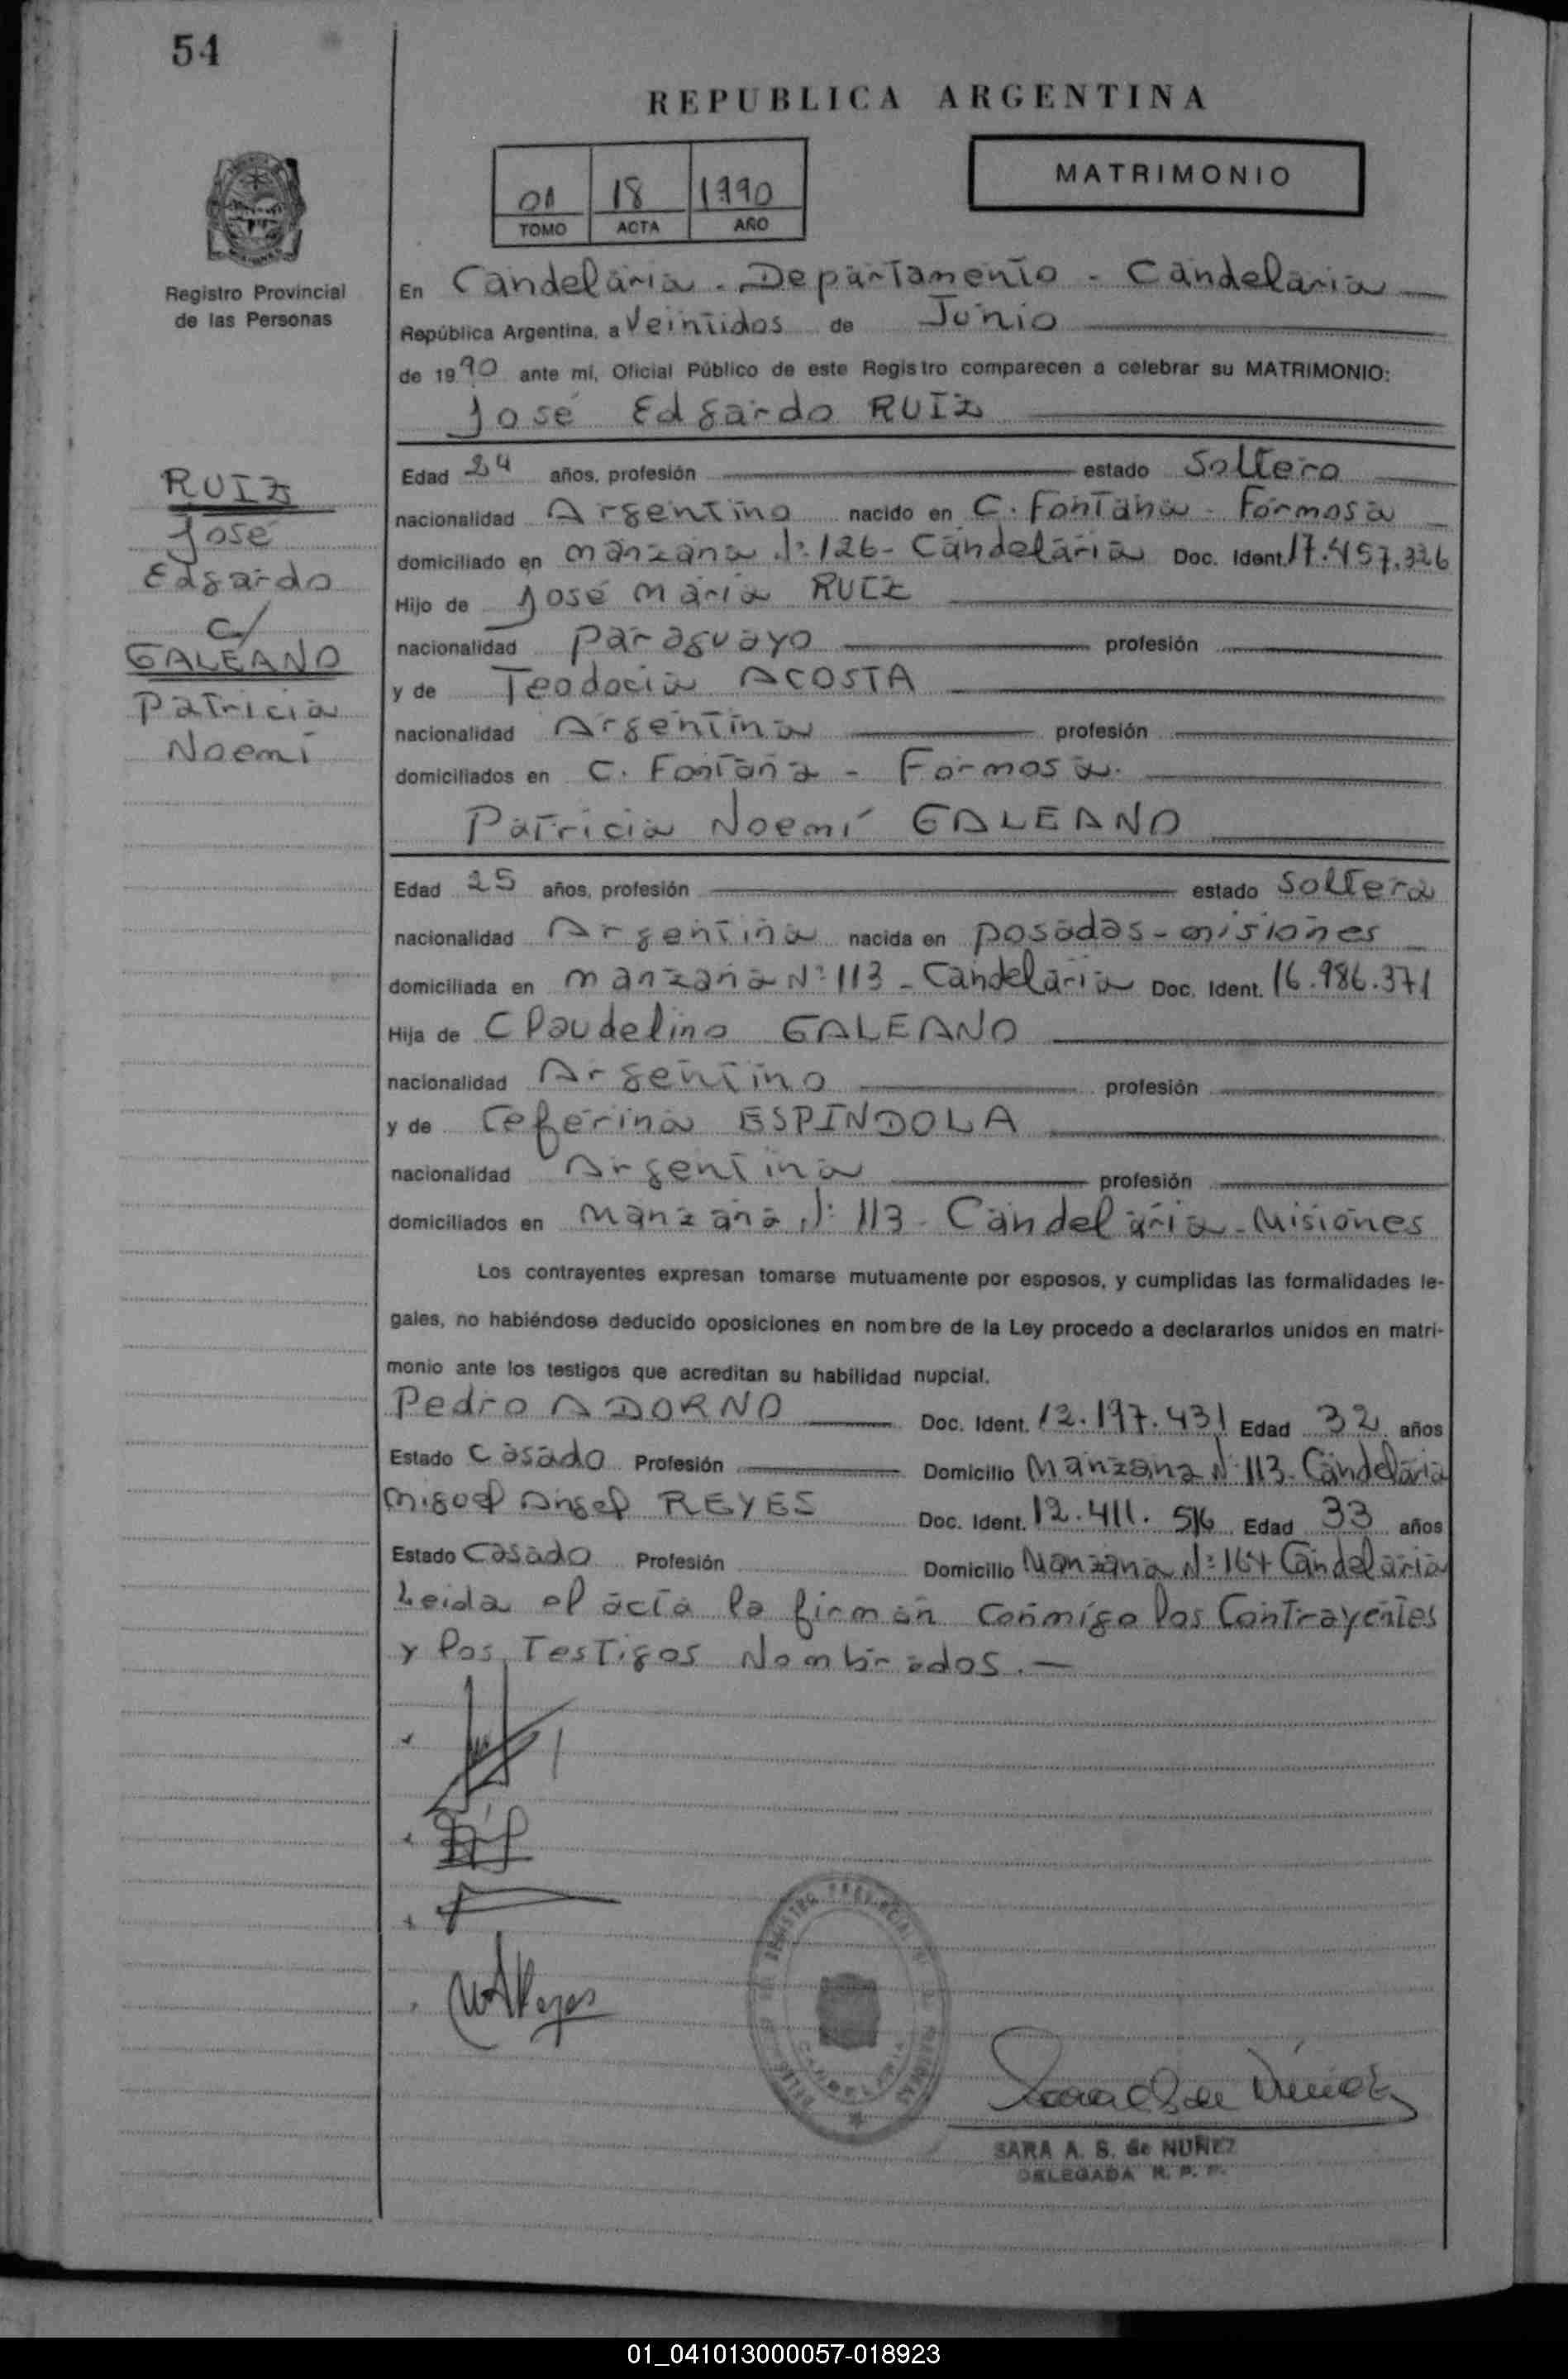 54
REPUBLICA ARGENTINA
01 18 1990
TOMO ACTA AÑO
MATRIMONIO
Registro Provincial
de las Personas
En Candelaria - Departamento - Candelaria
República Argentina, a Veintidos de Junio
de 1990 ante mí, Oficial Público de este Registro comparecen a celebrar su MATRIMONIO:
José Edgardo RUIZ
RUIZ
José
Edgardo
c/
GALEANO
Patricia
Noemi
Edad 24 años, profesión estado Soltero
nacionalidad Argentino nacido en C. Fontana - Formosa
domiciliado en manzana Nº 126 - Candelaria Doc. Ident. 17.457.326
Hijo de José maria RUIZ
nacionalidad paraguayo profesión
y de Teodocia ACOSTA
nacionalidad Argentina profesión
domiciliados en C. Fontana - Formosa.
Patricia Noemí GALEANO
Edad 25 años, profesión estado Soltera
nacionalidad Argentina nacida en posadas - misiones
domiciliada en manzana Nº 113 - Candelaria Doc. Ident. 16.986.371
Hija de Claudelino GALEANO
nacionalidad Argentino profesión
y de Ceferina ESPINDOLA
nacionalidad Argentina profesión
domiciliados en Manzana Nº 113 - Candelaria - Misiones
Los contrayentes expresan tomarse mutuamente por esposos, y cumplidas las formalidades le-
gales, no habiéndose deducido oposiciones en nombre de la Ley procedo a declararlos unidos en matri-
monio ante los testigos que acreditan su habilidad nupcial.
Pedro ADORNO Doc. Ident. 12.197.431 Edad 32 años
Estado Casado Profesión Domicilio Manzana Nº 113 - Candelaria
Miguel Angel REYES Doc. Ident. 12.411.516 Edad 33 años
Estado Casado Profesión Domicilio Manzana Nº 164 Candelaria
Leida el acta la firman conmigo los Contrayentes
y los Testigos Nombrados. —
SARA A. S. de NUÑEZ
DELEGADA R. P. P.
01_041013000057-018923